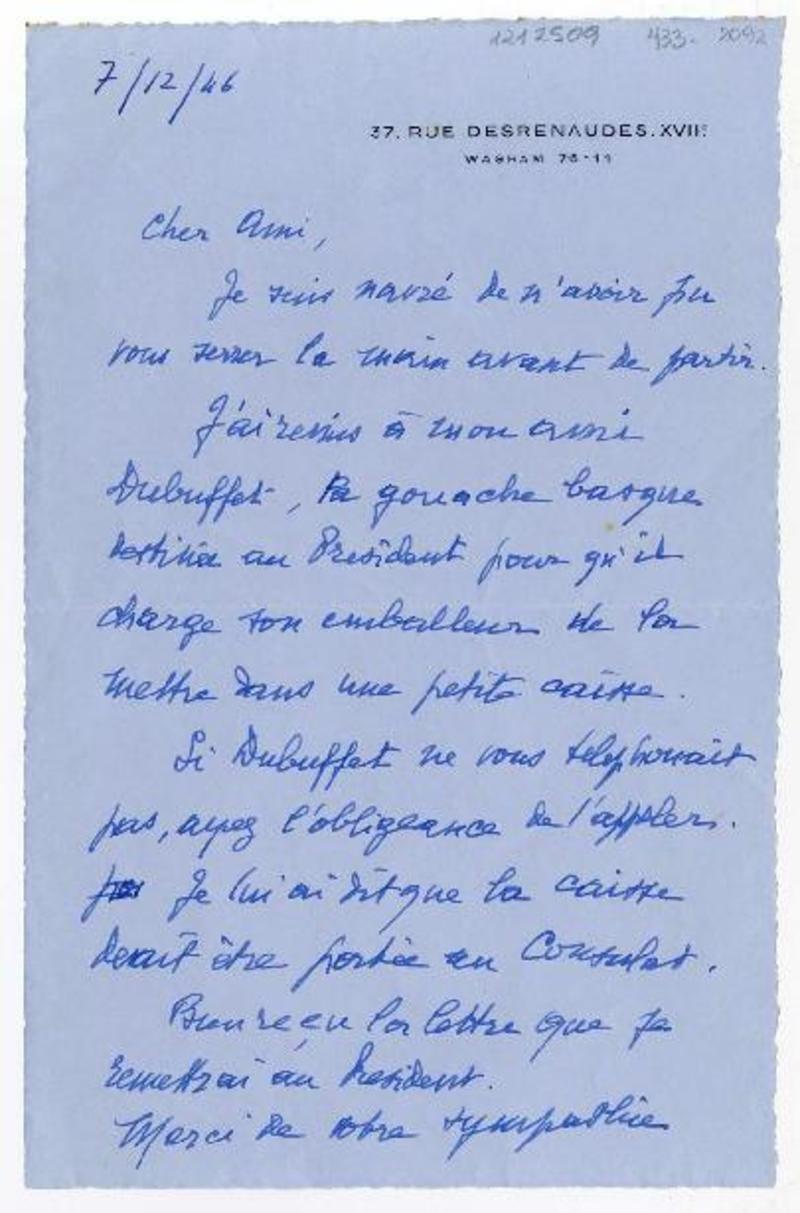 1212509 433. 2092
7/12/46
37, RUE DESRENAUDES. XVIIE
WAGRAM 76-11
Cher Ami,
Je suis navré de n'avoir pu
vous serrer la main avant de partir.
J'ai remis à mon ami
Dubuffet, la gouache basque
destinée au President pour qu'il
charge son emballeur de la
mettre dans une petite caisse.
Si Dubuffet ne vous telephonait
pas, ayez l'obligeance de l'appeler.
Je lui ai dit que la caisse
devait être portée au Consulat.
Bien reçu la lettre que je
remettrai au President.
Merci de votre sympathie